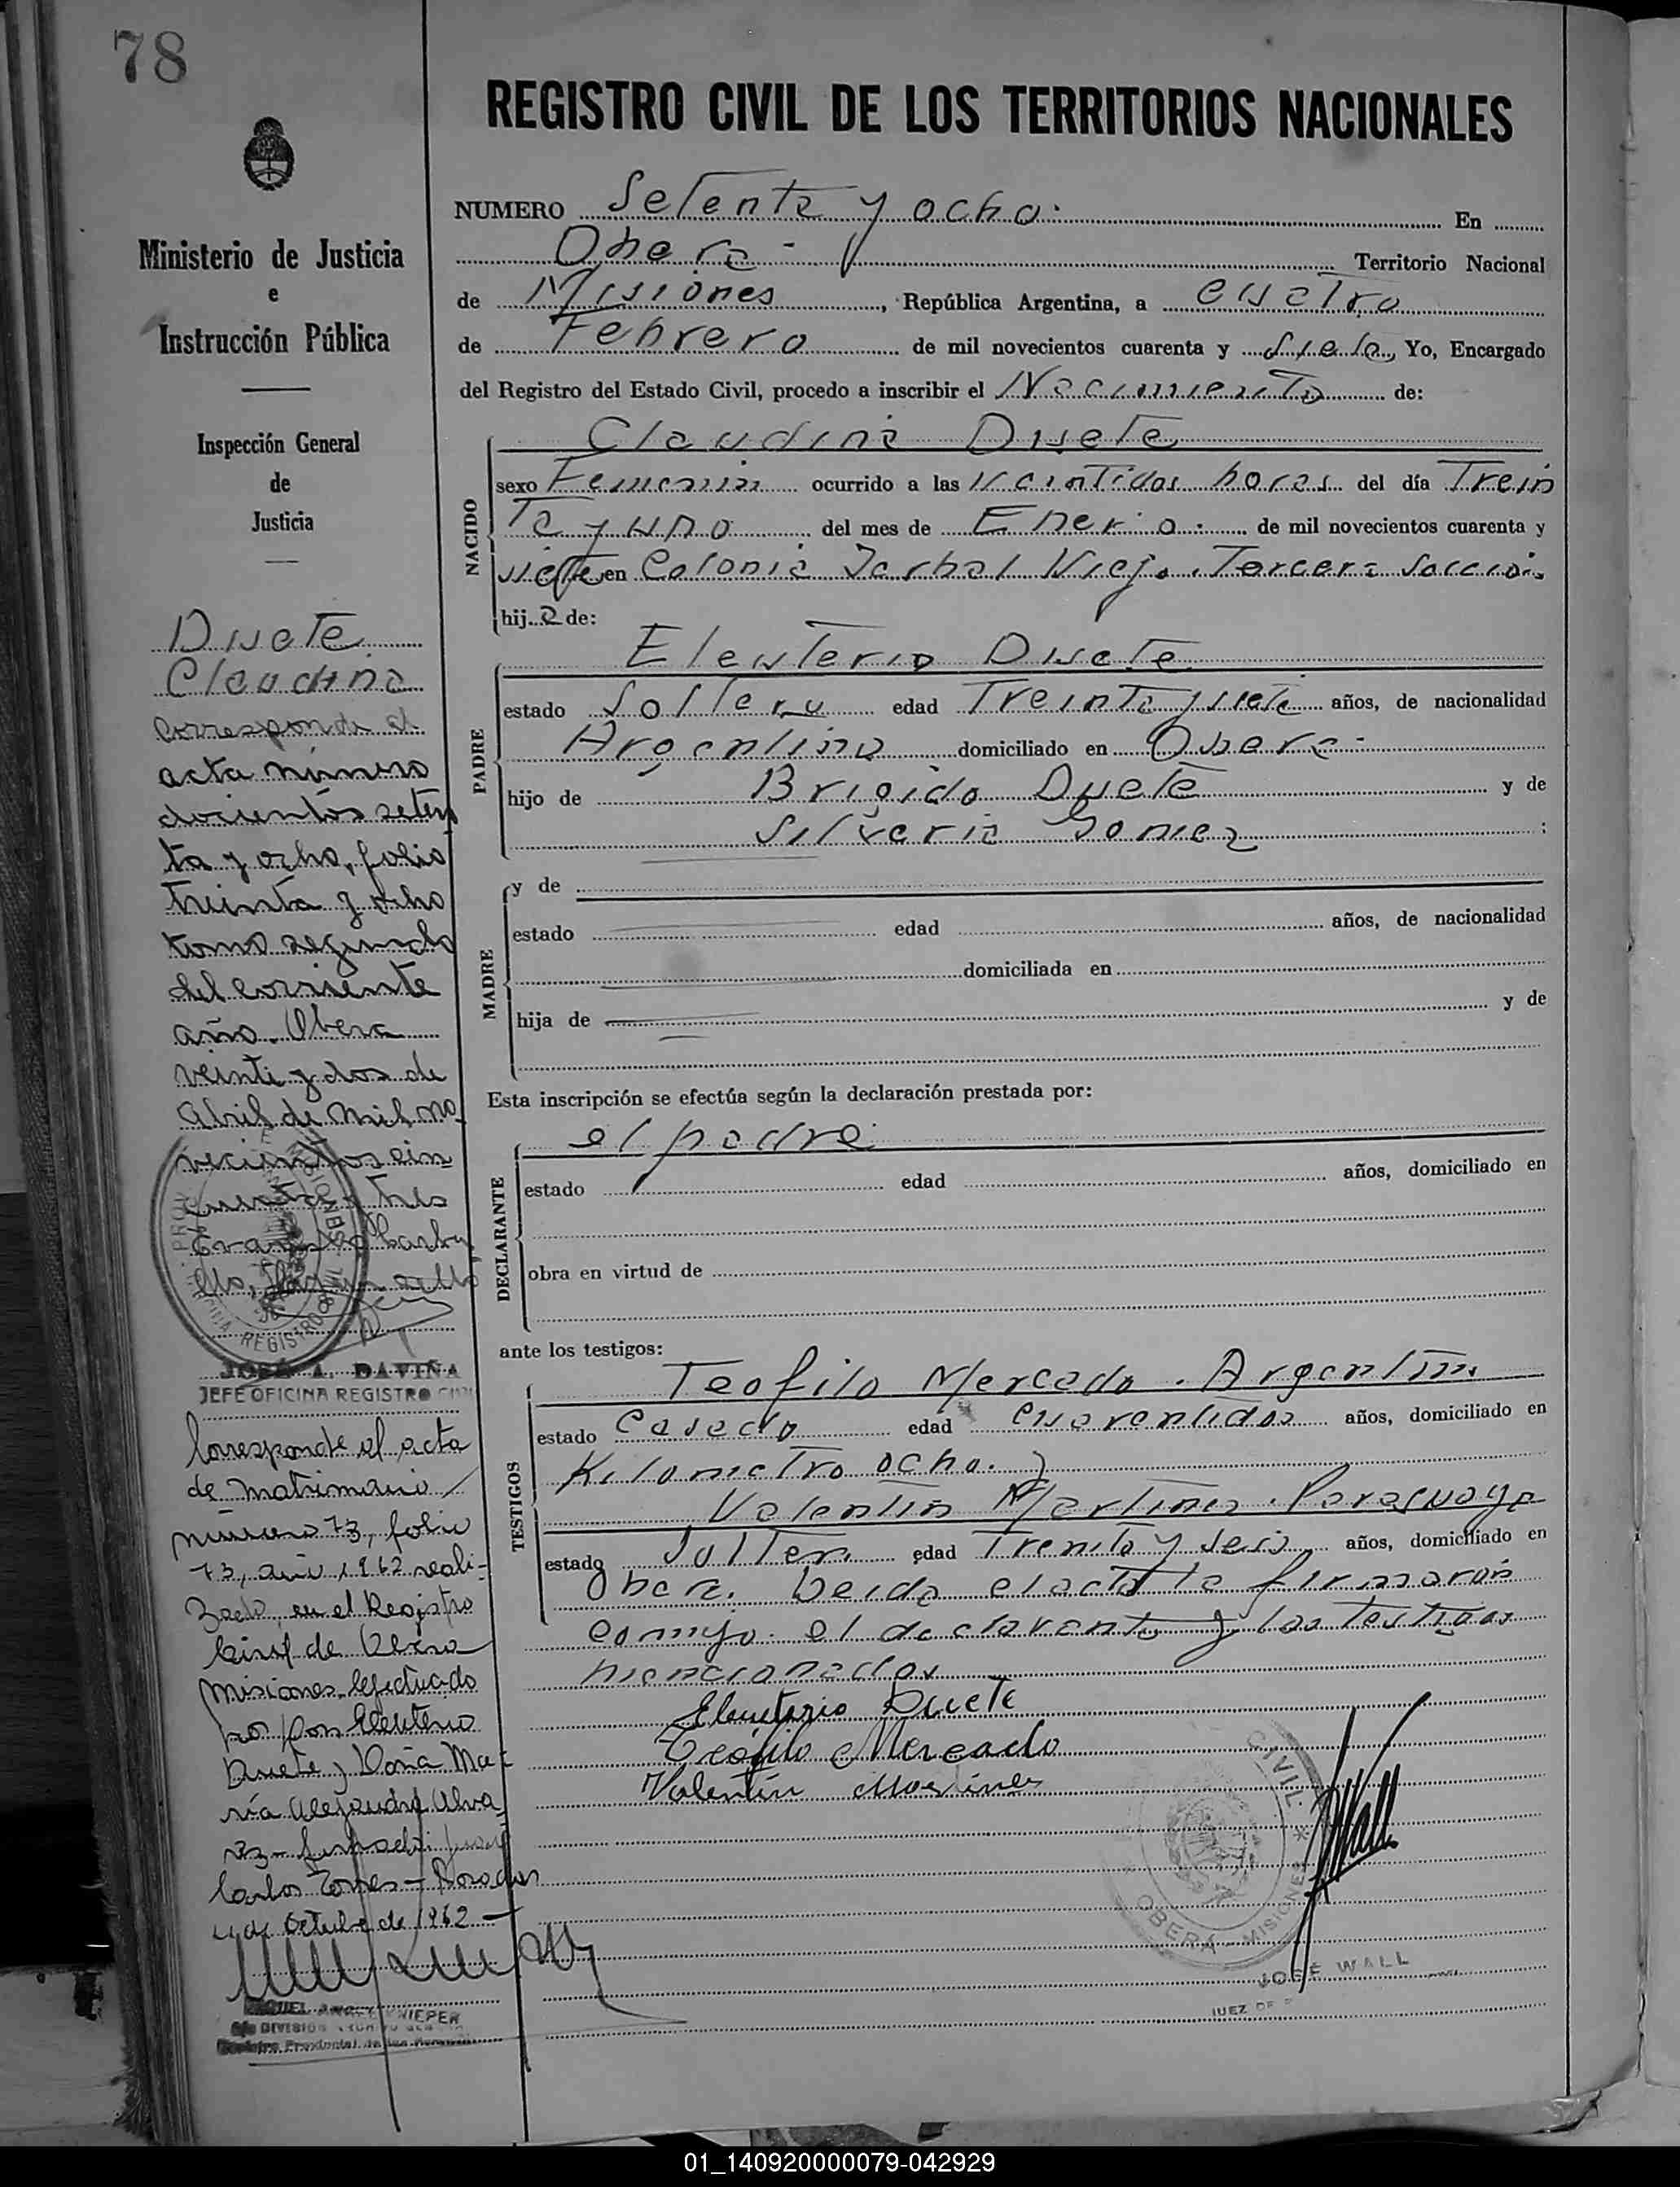 78
REGISTRO CIVIL DE LOS TERRITORIOS NACIONALES
Ministerio de Justicia
e
Instrucción Pública
Inspección General
de
Justicia
NUMERO Setenta y ocho. En
Obera - Territorio Nacional
de Misiones, República Argentina, a cuatro
de Febrero de mil novecientos cuarenta y siete, Yo, Encargado
del Registro del Estado Civil, procedo a inscribir el Nacimiento de:
NACIDO
Claudina Duete
sexo Femenin ocurrido a las Veintidos horas del día Trein
ta y uno del mes de Enero. de mil novecientos cuarenta y
siete en Colonia Yerbal Viejo. Tercera Seccion
hij a de:
PADRE
Eleuterio Duete
estado Soltero edad Treinta y siete años, de nacionalidad
Argentino domiciliado en Obera -
hijo de Brigido Duete y de
Silveria Gomez :
MADRE
y de
estado edad años, de nacionalidad
domiciliada en
hija de y de
Esta inscripción se efectúa según la declaración prestada por:
DECLARANTE
el padre
estado edad años, domiciliado en
obra en virtud de
ante los testigos:
TESTIGOS
Teofilo Mercado. Argentin
estado Casado edad cuarentidos años, domiciliado en
Kilometro ocho.
Valentin Martinez. Paraguayo
estado Solter. edad Treinta y seis años, domiciliado en
Obera. Leida el acta la firmaron
conmigo el declarante y los testigos
mencionados
Eleuterio Duete
Teófilo Mercado
Valentín Martinez
CIVIL
OBERÁ - MISIONES
JOSÉ WALL
JUEZ DE
Duete
Claudina
Corresponde al
acta número
docientos seten
ta y ocho, folio
treinta y ocho
tomo segundo
del corriente
año. Obera
veinte y dos de
Abril de mil no
vecientos cin
cuenta y tres
JOSÉ A. DAVIÑA
JEFE OFICINA REGISTRO CIVIL
Corresponde al acta
de matrimonio
número 73, folio
73, año 1962 reali-
zado en el Registro
Civil de Obera
Misiones. Efectuado
por Don Eleuterio
Duete y Doña Ma-
ría Alejandra Alva
rez -
Carlos Torres - Posadas
4 de Octubre de 1962 -
01_140920000079-042929